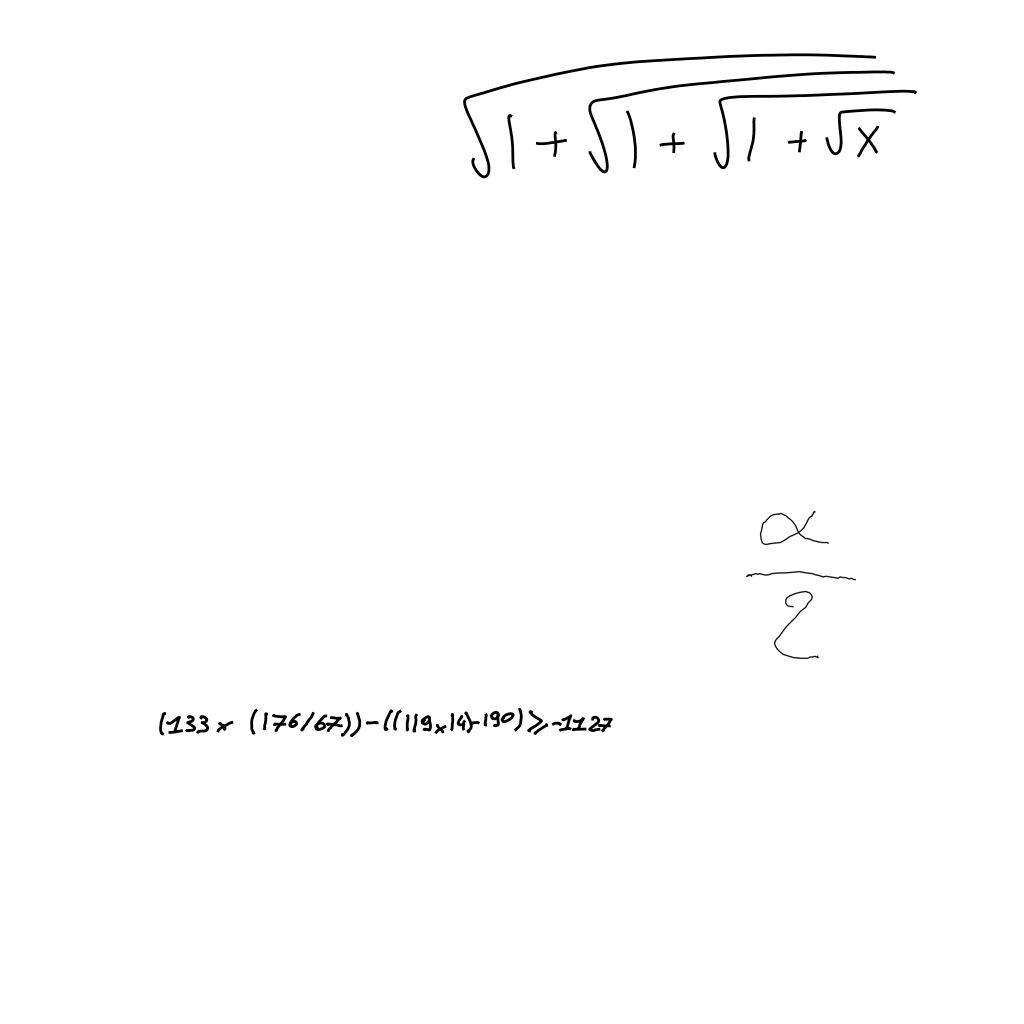 √(1 + √(1 + √(1 + √x)))
α/2
(133 × (176/67)) - ((119×14)-190) ⩾ -1127